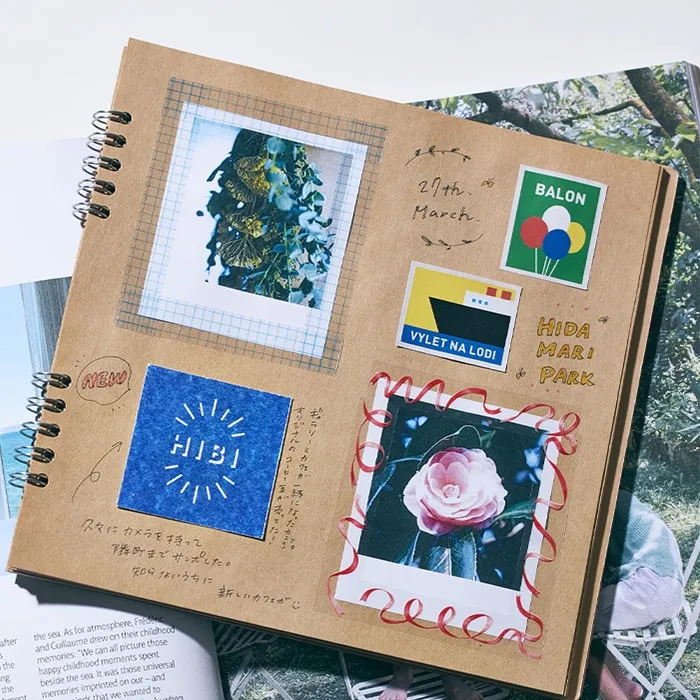 27th.
March.
BALON
VYLET NA LODI
HIDA
MARI
PARK
NEW
HIBI
ギャラリーとカフェが一緒になったカフェ。
オリジナルのコーヒー豆が売ってた!
久々にカメラを持って
隣町までサンポした。
知らないうちに
新しいカフェが
after
the
the sea. As for atmosphere, Frédéric
and Guillaume drew on their childhood
memories: "We can all picture those
happy childhood moments spent
beside the sea. It was those universal
memories imprinted on our – and
minds that we wanted to